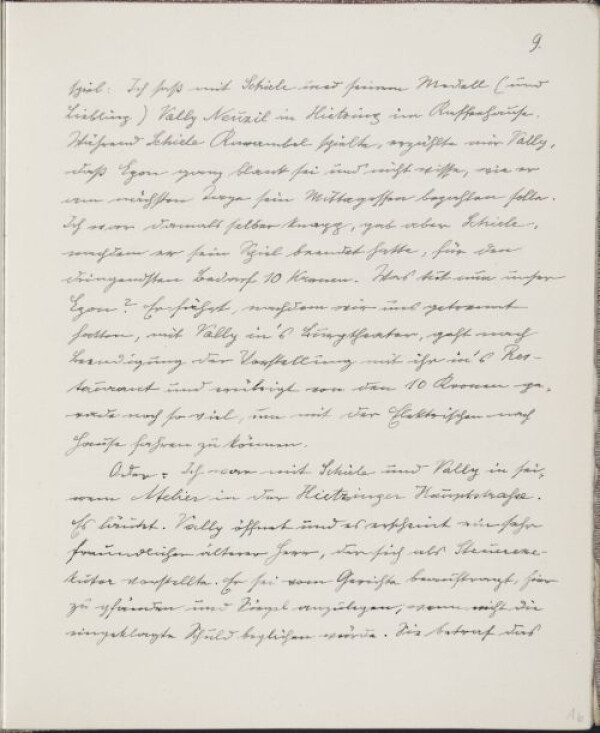 9.
spiel: Ich saß mit Schiele und seinem Modell (und
Liebling) Vally Neuzil in Hietzing im Kaffeehause.
Während Schiele Karambol spielte, erzählte mir Vally,
daß Egon ganz blank sei und nicht wisse, wie er
am nächsten Tage sein Mittagessen bezahlen solle.
Ich war damals selber knapp, gab aber Schiele,
nachdem er sein Spiel beendet hatte, für den
dringendsten Bedarf 10 Kronen. Was tut nun unser
Egon? Er fährt, nachdem wir uns getrennt
hatten, mit Vally in's Burgtheater, geht nach
Beendigung der Vorstellung mit ihr in's Res-
taurant und erübrigt von den 10 Kronen ge-
rade noch so viel, um mit der Elektrischen nach
Hause fahren zu können.
Oder: Ich war mit Schiele und Vally in sei-
nem Atelier in der Hietzinger Hauptstraße.
Es läutet. Vally öffnet und es erscheint ein sehr
freundlicher älterer Herr, der sich als Steuerexe-
kutor vorstellte. Er sei vom Gerichte beauftragt, hier
zu pfänden und Siegel anzulegen, wenn nicht die
eingeklagte Schuld beglichen würde. Sie betraf das